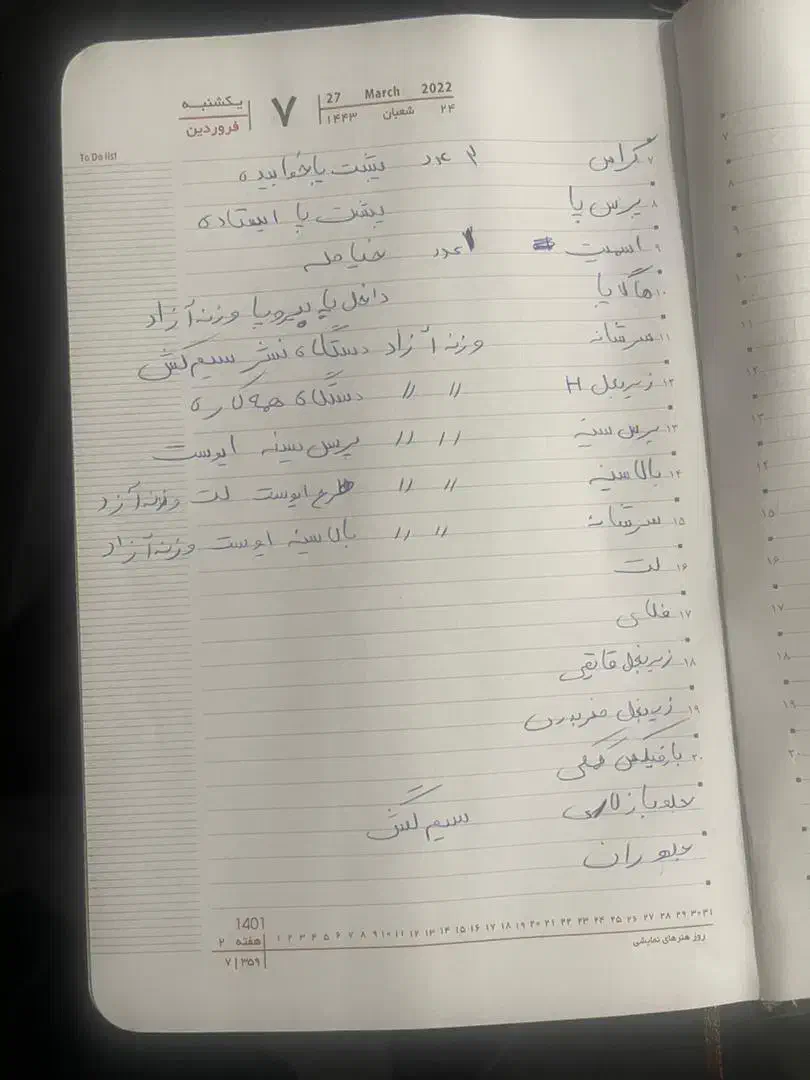 یکشنبه ۷ 27 March 2022
فروردین ۱۴۴۳ شعبان ۲۴
To Do list
۷ کراس ۳ عدد پشت پا خوابیده
۸ پرس پا پشت پا ایستاده
۹ اسمیت ۱ عدد
۱۰ هاگ پا داخل پا وزنه آزاد
۱۱ سرشانه وزنه آزاد دستگاه نشر سیم کش
۱۲ زیربغل H 〃 〃 دستگاه همه کاره
۱۳ پرس سینه 〃 〃 پرس سینه ایوست
۱۴ بالا سینه 〃 〃 ایوست لت وزنه آزاد
۱۵ سرشانه 〃 〃 بالا سینه ایوست وزنه آزاد
۱۶ لت
۱۷ فلای
۱۸ زیربغل قایقی
۱۹ زیربغل
۲۰ بارفیکس کمکی
جلو بازو لاری سیم کش
جلو ران
1401 ۱ ۲ ۳ ۴ ۵ ۶ ۷ ۸ ۹ ۱۰ ۱۱ ۱۲ ۱۳ ۱۴ ۱۵ ۱۶ ۱۷ ۱۸ ۱۹ ۲۰ ۲۱ ۲۲ ۲۳ ۲۴ ۲۵ ۲۶ ۲۷ ۲۸ ۲۹ ۳۰ ۳۱
هفته ۲ روز هنرهای نمایشی
۷ | ۳۵۹
۷
۸
۹
۱۰
۱۱
۱۲
۱۳
۱۴
۱۵
۱۶
۱۷
۱۸
۱۹
۲۰